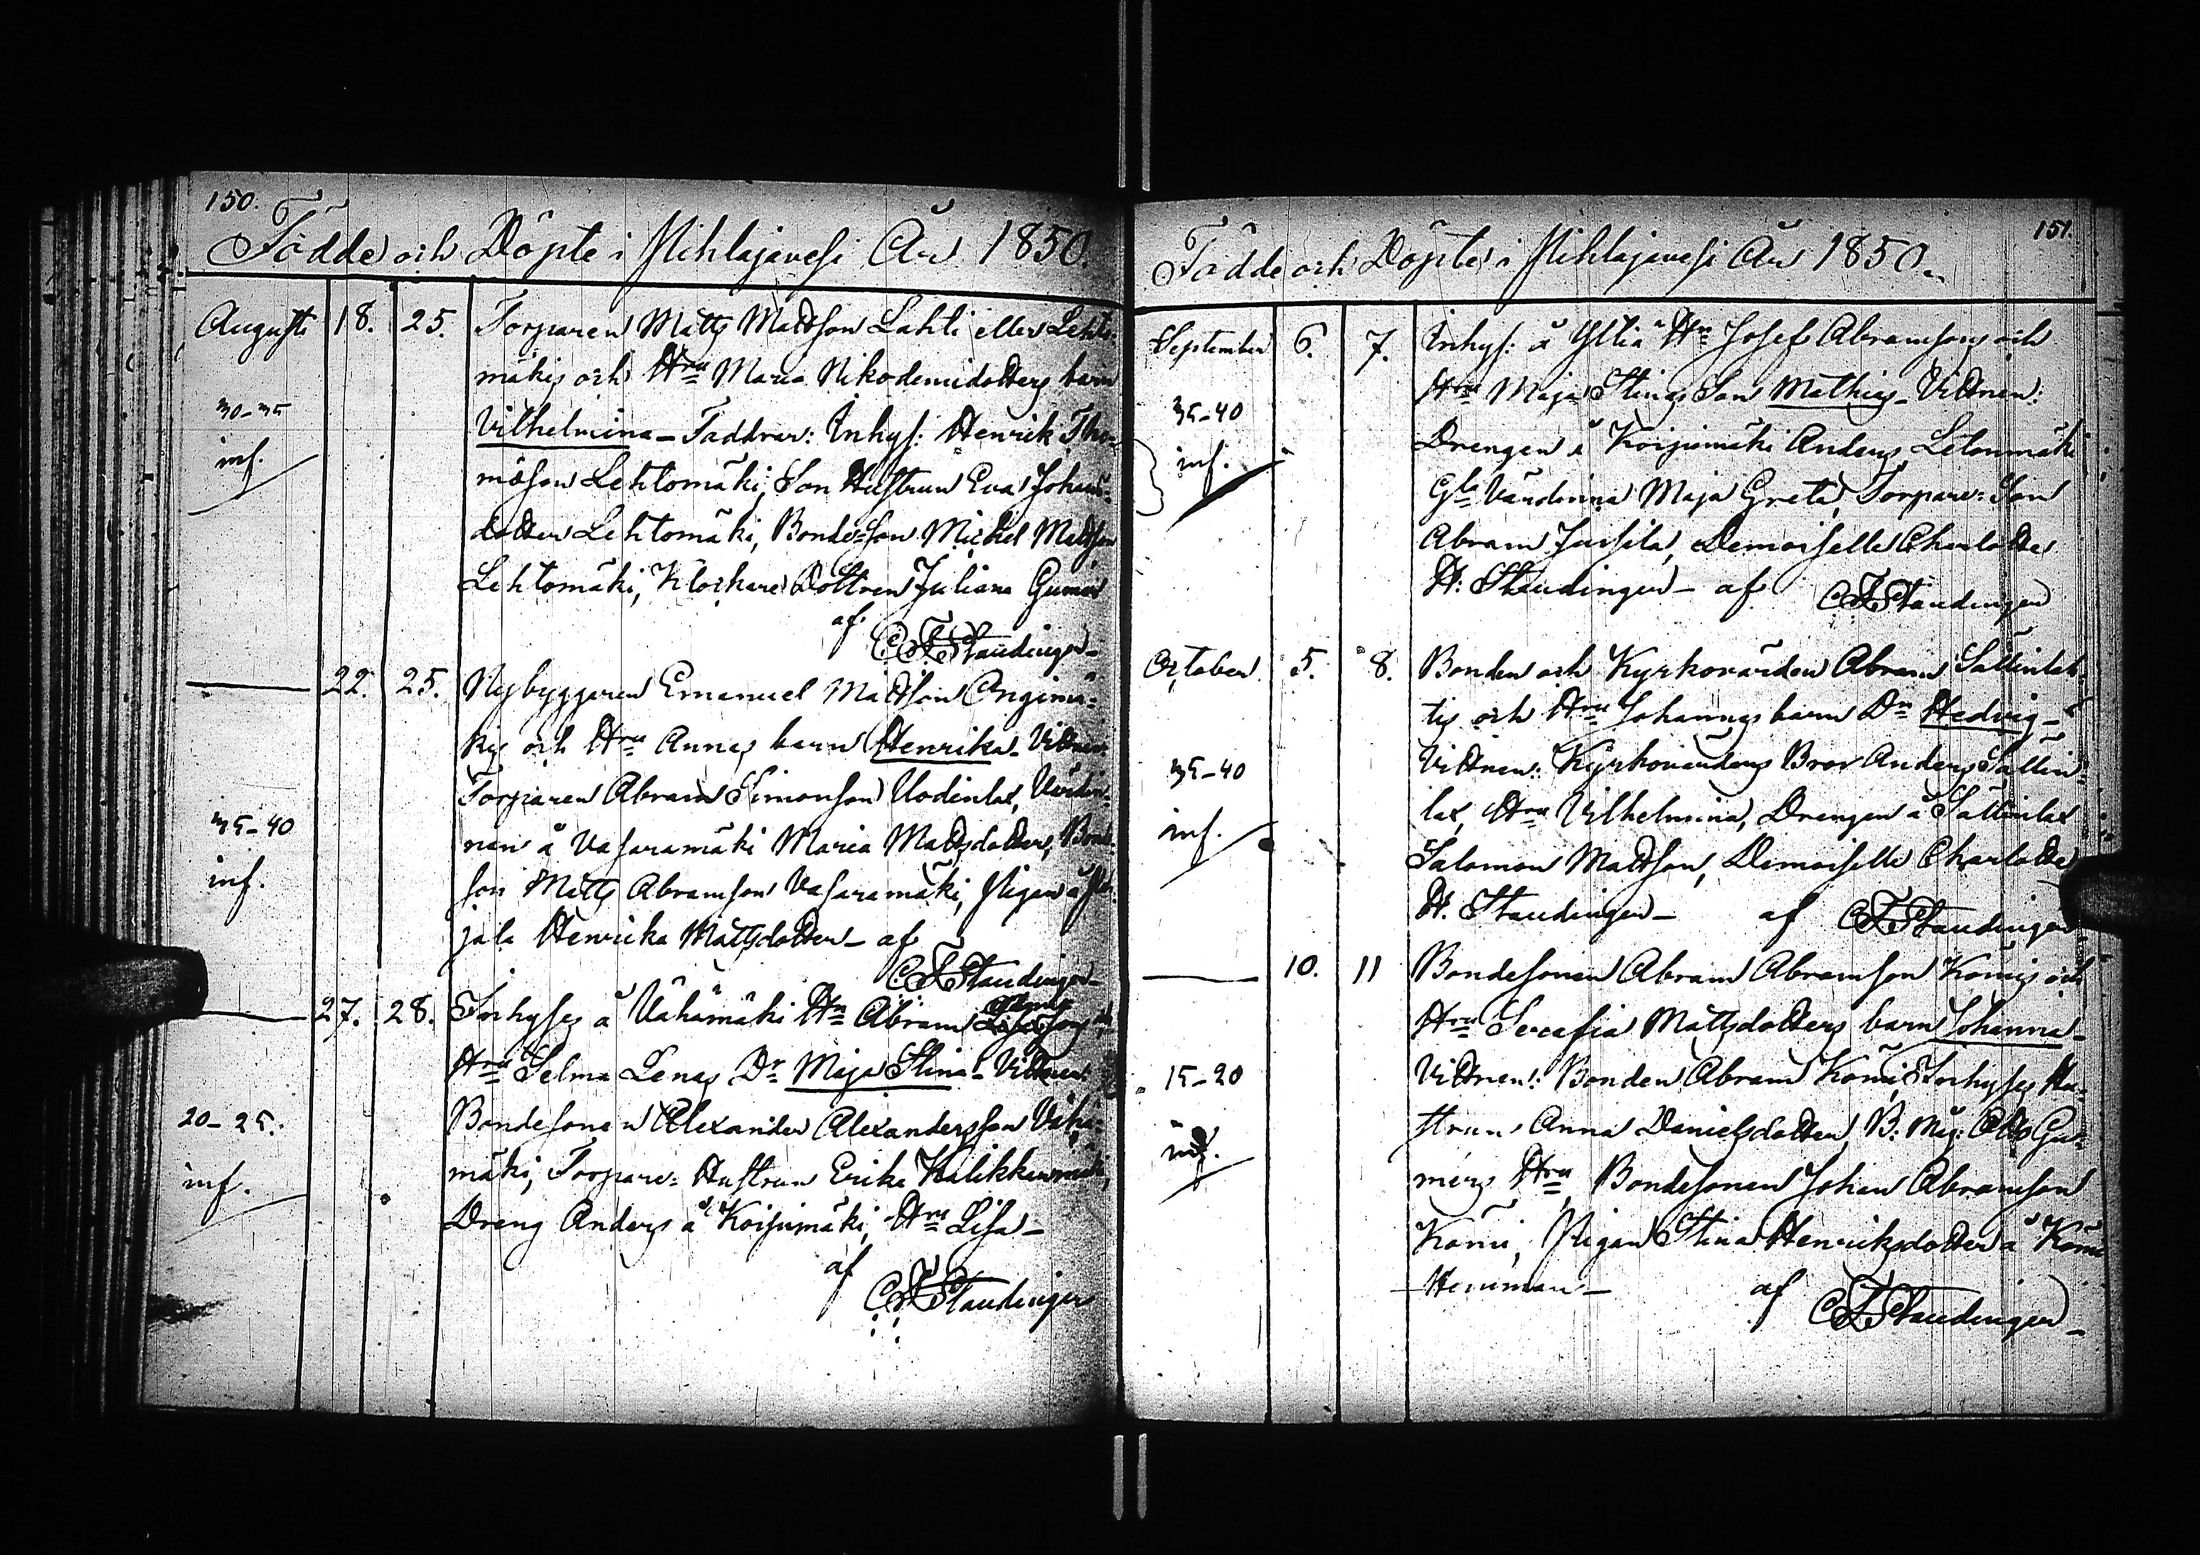 150.
Födde och Döpte i Pihlajavesi År 1850.
Augusti 18. 25. Torparen Matts Mattson Lahti eller Lehto-
mäkis och Hru Maria Nikodemidotters barn
30-35
Vilhelmina – Faddrar: Inhys: Henrik Tho-
inf.
mäson Lehtomäki, Son Hustrun Eva Johans-
dotter Lehtomäki, Bonde-son Michel Mattson
Lehtomäki, Klockare Dottren Juliana Gumer
af
C F Staudinger –
22. 25. Nybyggaren Emanuel Mattson Anginmä-
kis och Hru Annas barn Henrika – Vittnen:
Torparen Abram Simonson Uodinlax, Värdin-
35-40
nan å Vasaramäki Maria Mattsdotter, Bonde-
inf.
son Matts Abramson Vasaramäki, Pigan å
jala Henrika Mattsdotter – af
C F Staudinger –
27. 28. Inhyses å Vähämäki Hn Abram
Hru Selma Lenas Dr Maja Stina – Vittnen:
20-25.
Bondesonen Alexander Alexandersson Vähä-
inf.
mäki, Torpare: Hustrun Erika Kalikkanmäki,
Dreng Anders å Koisumäki, Hru Lisa –
af
C F Staudinger
151.
Födde och Döpte i Pihlajavesi År 1850.
September 6. 7. Inhys: å Yltiä Hn Josef Abramsons och
Hru Maja Stinas Son Mathias – Vittnen:
35-40
Drengen å Koisumäki Anders Letonmäki
inf.
Gla Värdinna Maja Greta, Torpare: Son
Abram Jussila, Demoiselle Charlotte
H: Staudinger – af C F Staudinger
October 5. 8. Bonden och Kyrkovärden Abram Sällinlak-
tis och Hru Johannas barn Dn Hedvig –
35-40
Vittnen: Kyrkovärdens Bror Anders Sällin-
inf.
lax, Hru Vilhelmina, Drengen å Sällinlax
Salomon Mattson, Demoiselle Charlotte
H. Staudinger – af C F Staudinger
10. 11 Bondesonen Abram Abramson Kömis och
Hru Serafia Mattsdotters barn Johanna –
15-20
Vittnen: Bonden Abram Kömi, Inhyses Hu-
inf.
strun Anna Danielsdotter, B: Mäg: Gu-
mers Hru Bondesonen Johan Abramson
Kömi, Pigan Stina Henriksdotter å Kömi
Hemman – af C F Staudinger –